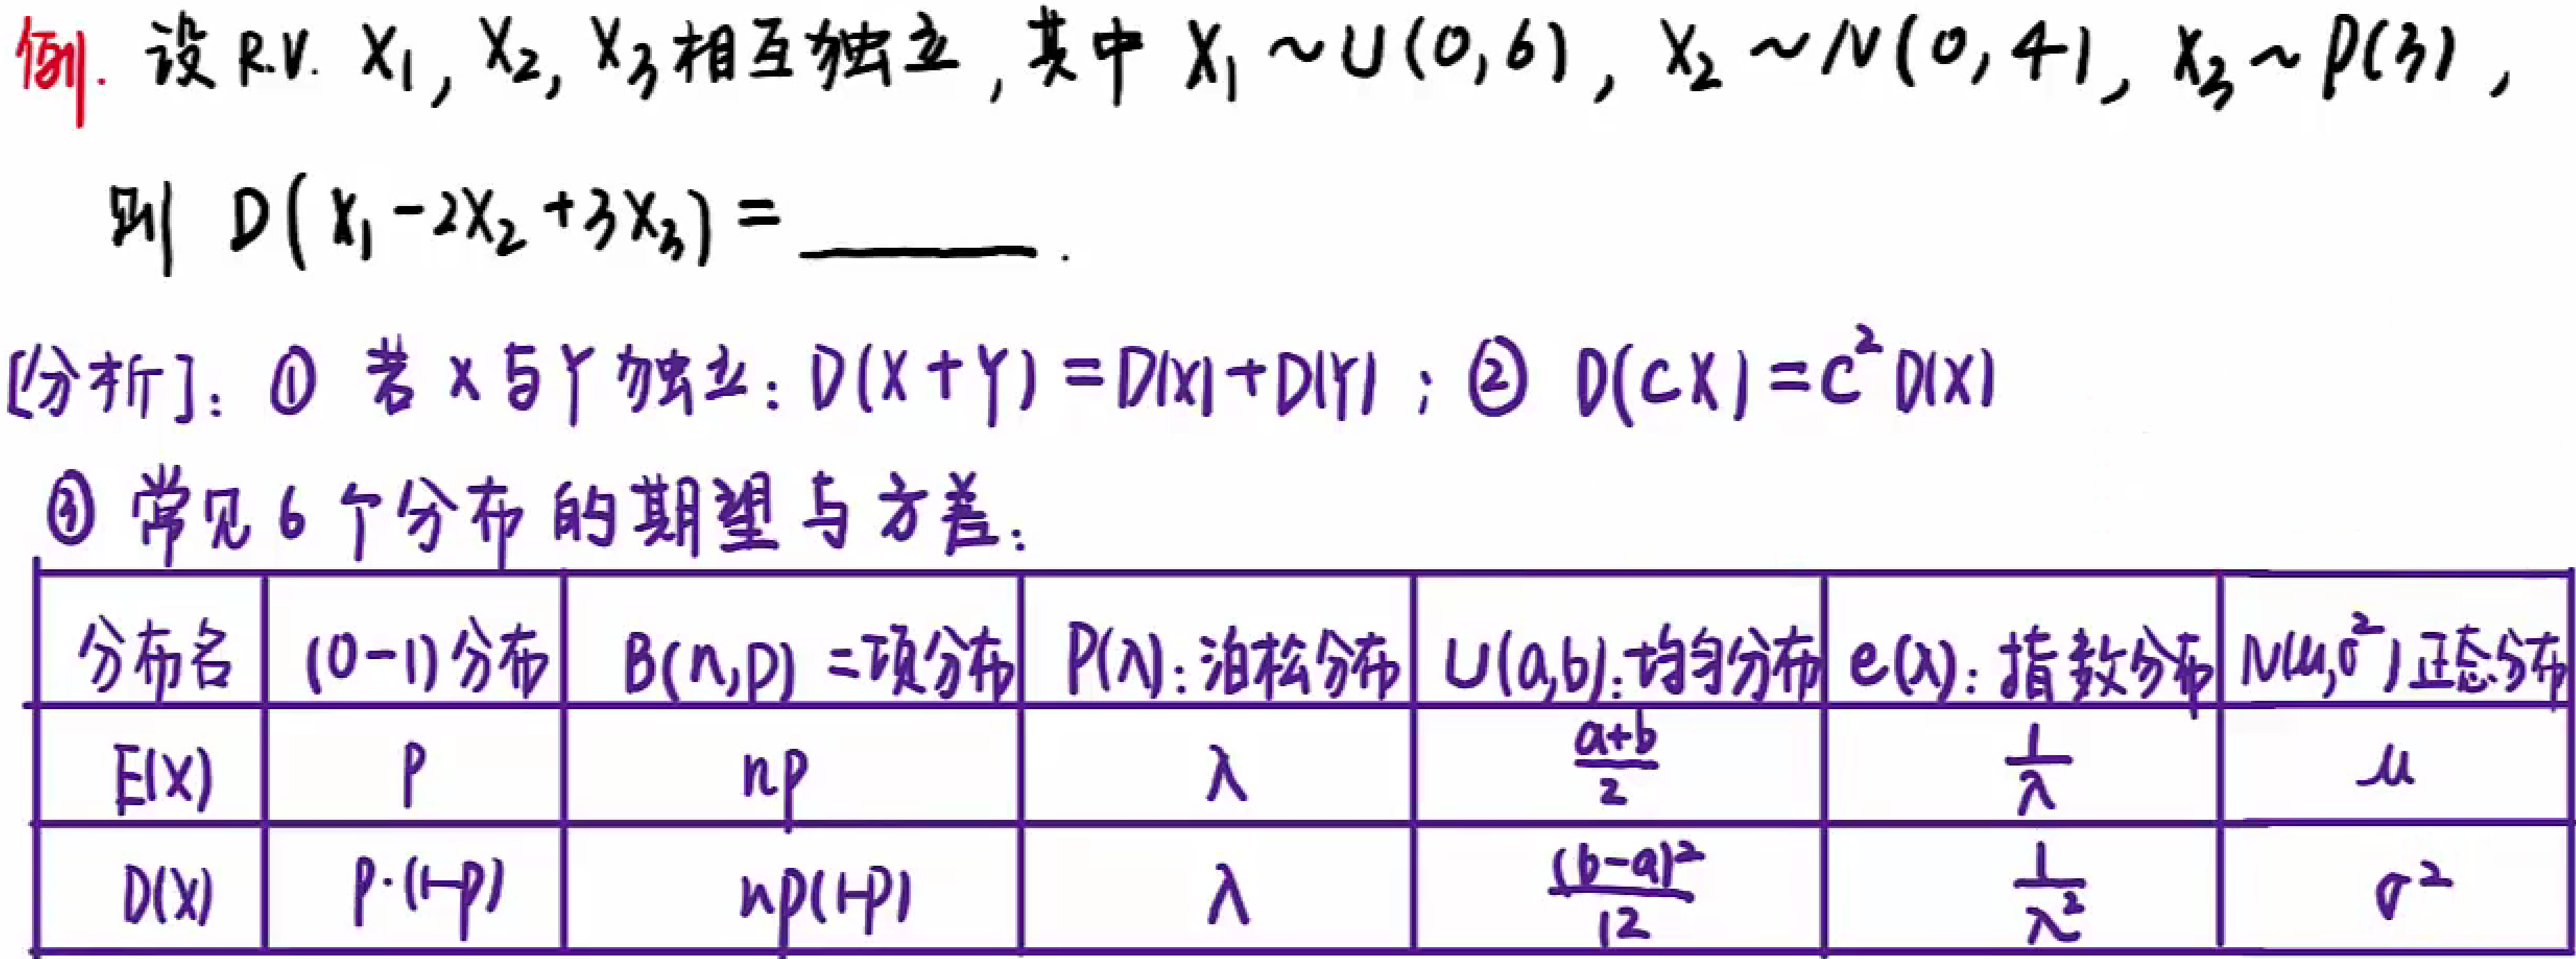 例. 设 R.V. X₁, X₂, X₃相互独立,其中 X₁~U(0,6), X₂~N(0,4), X₃~P(3),
则 D(X₁-2X₂+3X₃)=______.
[分析]: ① 若 X与Y独立: D(X+Y)=D(X)+D(Y); ② D(CX)=C²D(X)
③ 常见6个分布的期望与方差:
分布名 (0-1)分布 B(n,p) 二项分布 P(λ):泊松分布 U(a,b):均匀分布 e(λ):指数分布 N(μ,σ²)正态分布
E(X) P np λ (a+b)/2 1/λ μ
D(X) P·(1-P) np(1-p) λ (b-a)²/12 1/λ² σ²